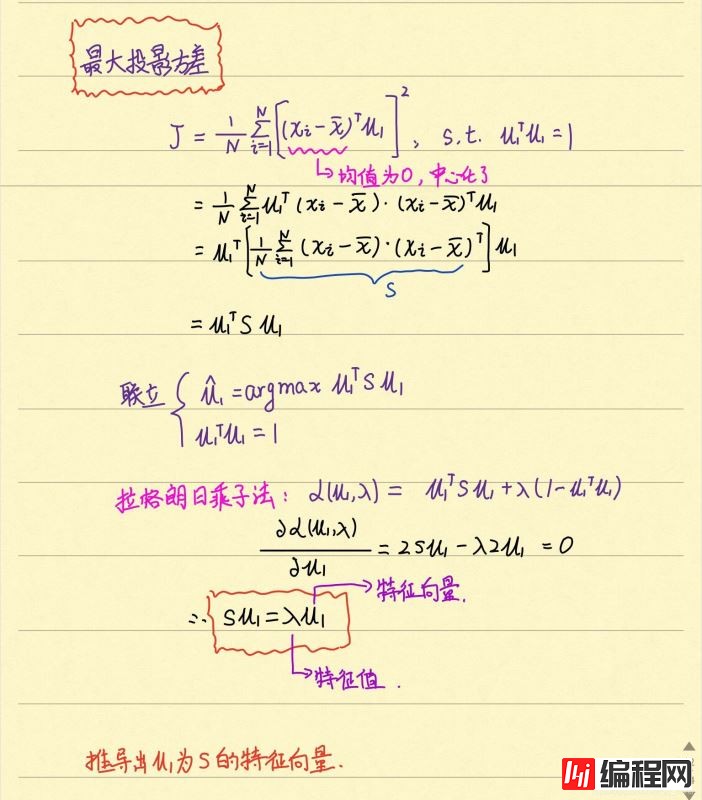 最大投影方差
J = 1/N ∑_{i=1}^{N} [(x_i - x̄)^T u_1]^2, s.t. u_1^T u_1 = 1
均值为0, 中心化了
= 1/N ∑_{i=1}^{N} u_1^T (x_i - x̄)·(x_i - x̄)^T u_1
= u_1^T [1/N ∑_{i=1}^{N} (x_i - x̄)·(x_i - x̄)^T] u_1
S
= u_1^T S u_1
联立 { û_1 = argmax u_1^T S u_1
u_1^T u_1 = 1
拉格朗日乘子法: L(u_1,λ) = u_1^T S u_1 + λ(1-u_1^T u_1)
∂L(u_1,λ)/∂u_1 = 2Su_1 - λ2u_1 = 0
特征向量.
∴ Su_1 = λu_1
特征值.
推导出u_1为S的特征向量.
编程网